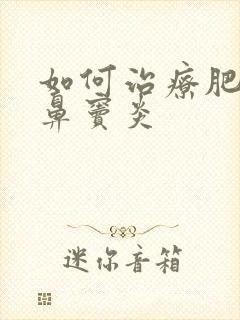 如何治療肥
鼻竇炎
迷你音箱